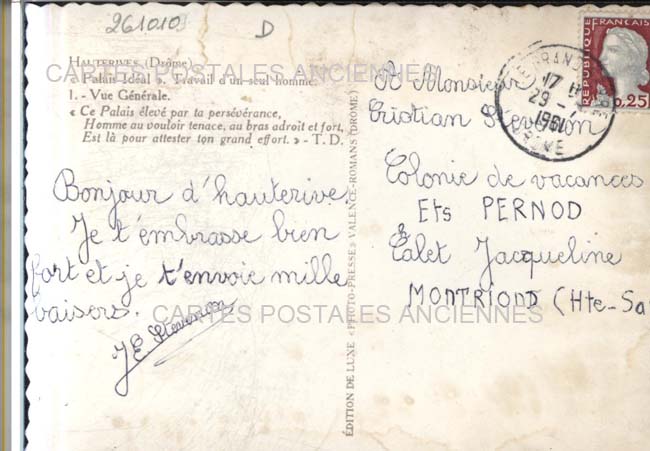 2610109
D
HAUTERIVES (Drôme)
« Palais Idéal ». Travail d'un seul homme.
1. - Vue Générale.
« Ce Palais élevé par ta persévérance,
Homme au vouloir tenace, au bras adroit et fort,
Est là pour attester ton grand effort. » - T. D.
CARTES POSTALES ANCIENNES
Bonjour d'hauterive.
Je t'embrasse bien
fort et je t'envoie mille
baisers.
JE Stevenon
ÉDITION DE LUXE « PHOTO-PRESSE » VALENCE-ROMANS (DROME)
17 H
29 -
1961
DROME
REPUBLIQUE FRANÇAISE
0,25
A Monsieur
Cristian Stevenon
Colonie de vacances
Ets PERNOD
Calet Jacqueline
MONTRIOND (Hte-Sa
CARTES POSTALES ANCIENNES